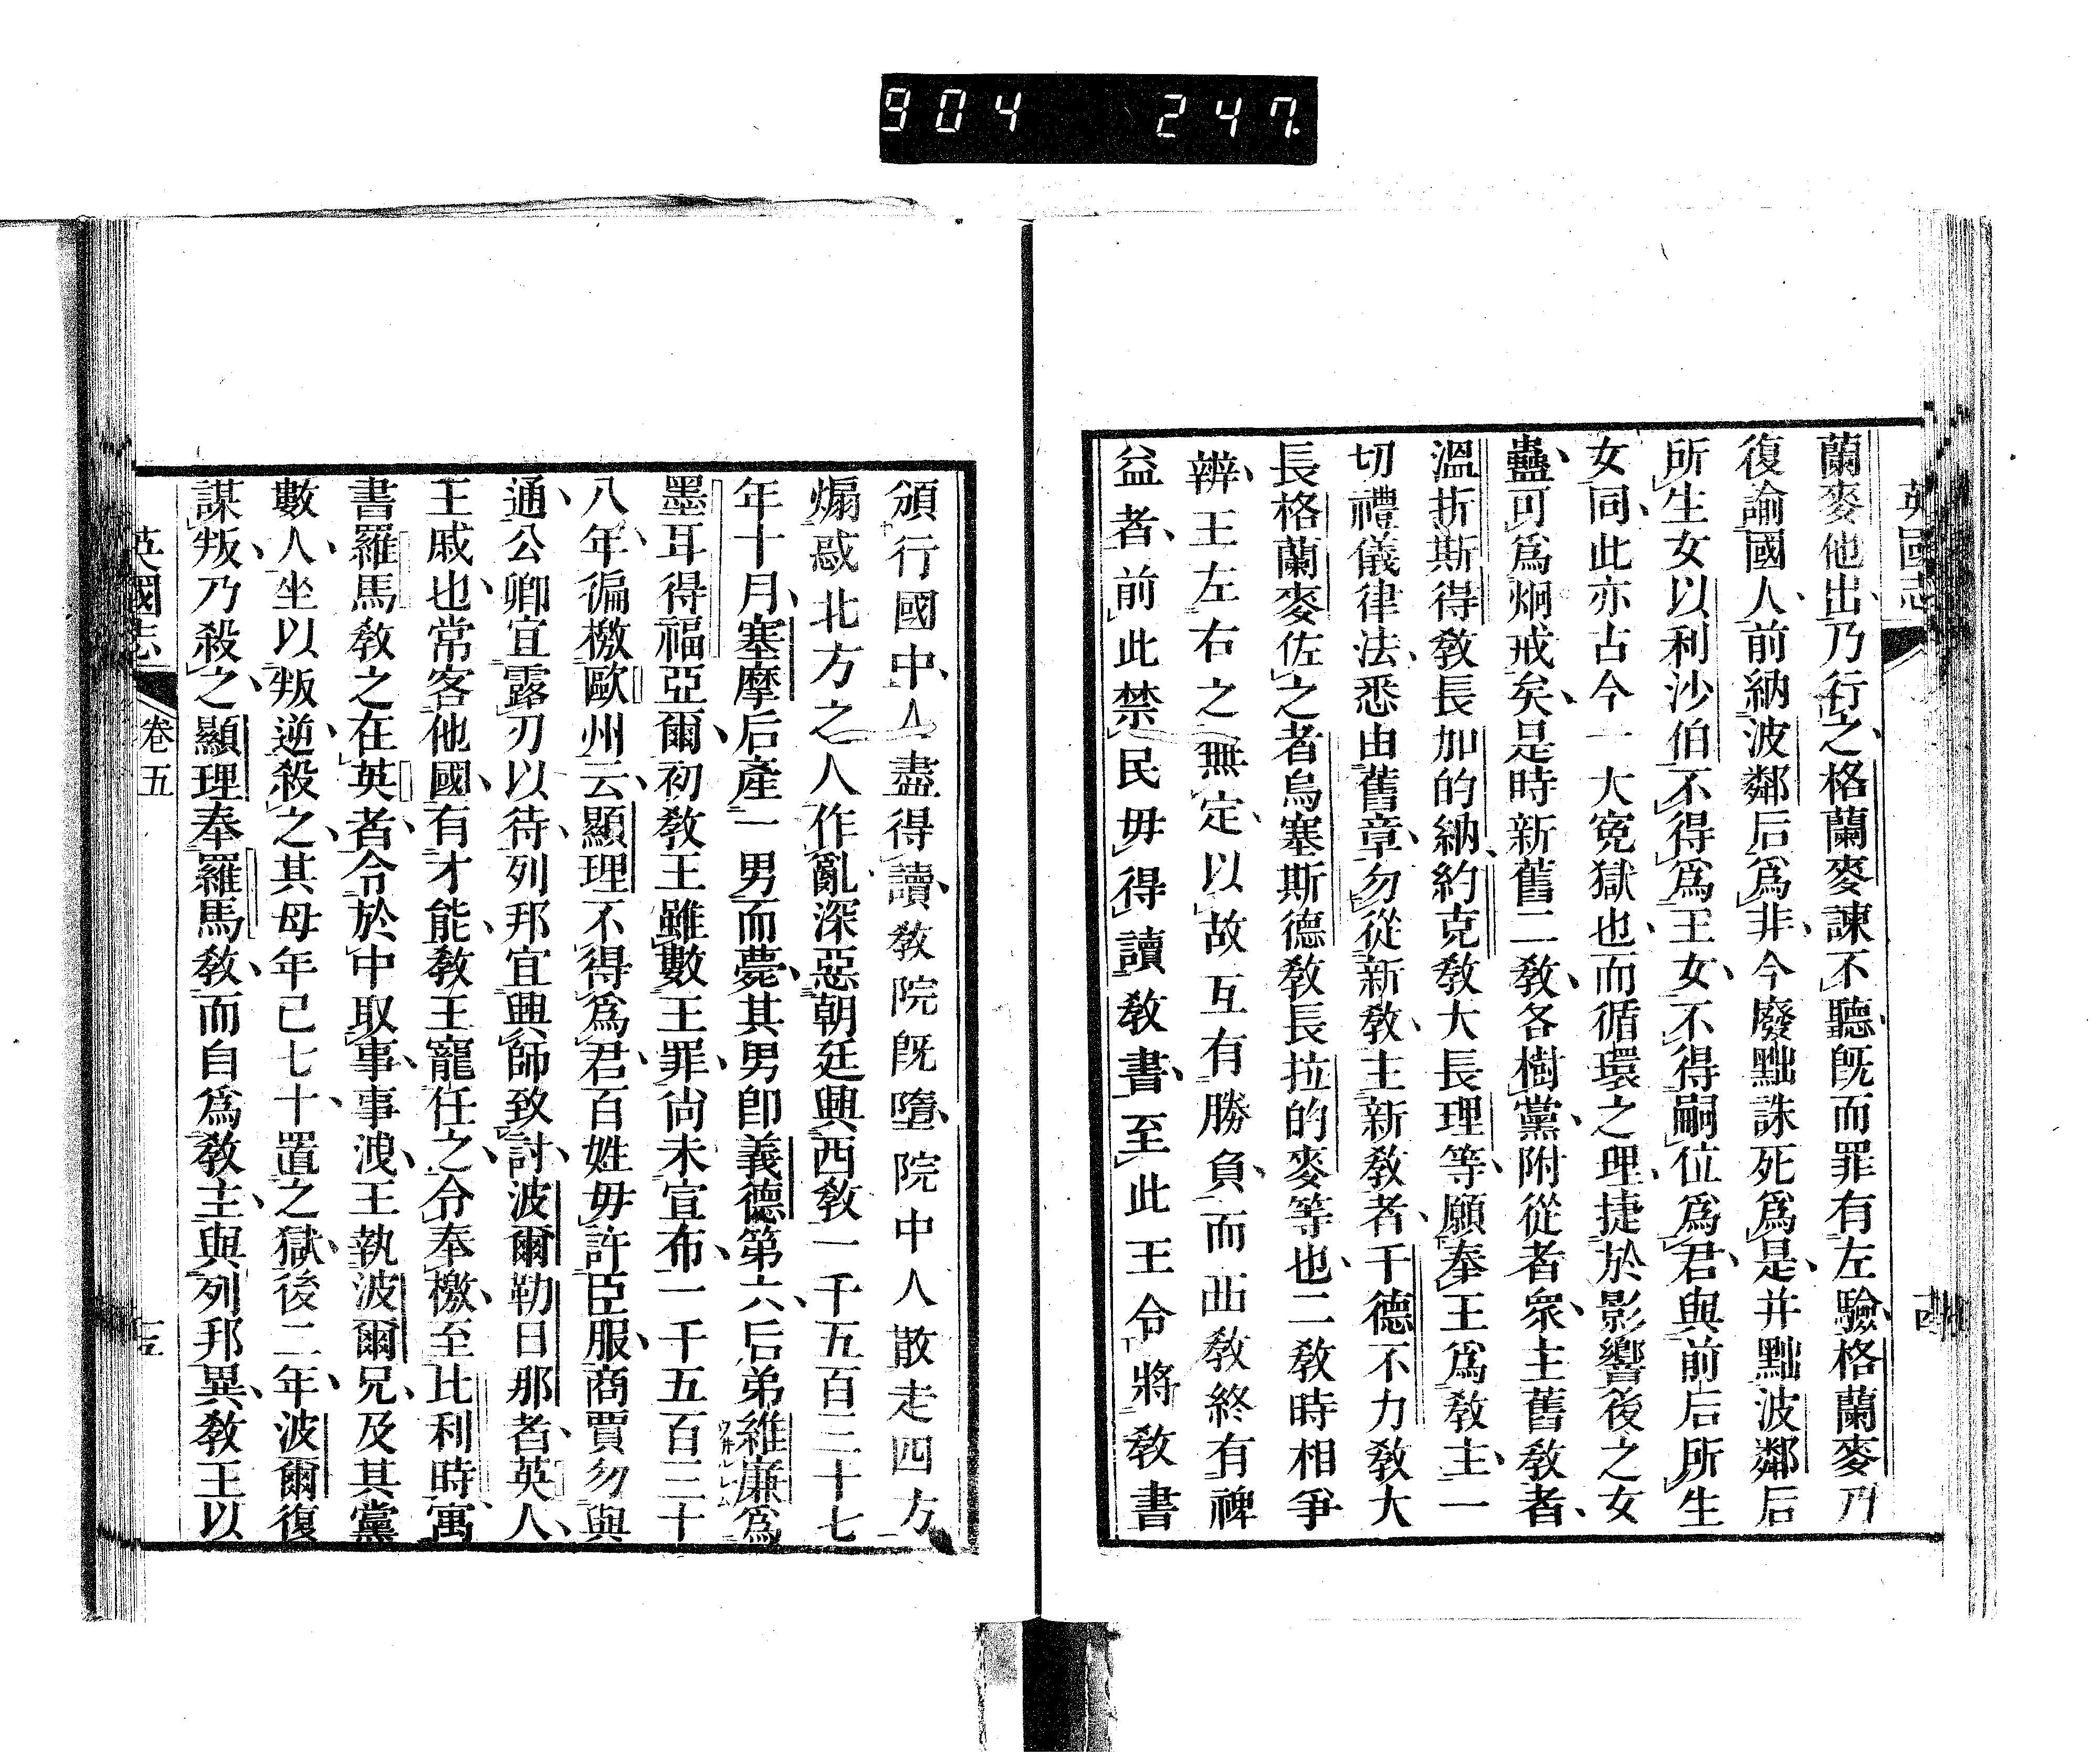 904 247
英國志
蘭麥他出乃行之格蘭麥諫不聽既而罪有左驗格蘭麥乃
復諭國人前納波鄰后爲非今廢黜誅死爲是并黜波鄰后
所生女以利沙伯不得爲王女不得嗣位爲君與前后所生
女同此亦古今一大寃獄也而循環之理捷於影響後之女
蠱可爲炯戒矣是時新舊二敎各樹黨附從者衆主舊敎者
溫折斯得敎長加的納約克敎大長理等願奉王爲敎主一
切禮儀律法悉由舊章勿從新敎主新敎者干德不力敎大
長格蘭麥佐之者烏塞斯德敎長拉的麥等也二敎時相爭
辨王左右之無定以故互有勝負而西敎終有裨
益者前此禁民毋得讀敎書至此王令將敎書
頒行國中人盡得讀敎院旣墮院中人散走四方
煽惑北方之人作亂深惡朝廷興西敎一千五百三十七
年十月塞摩后產一男而薨其男卽義德第六后弟維廉爲
墨耳得福亞爾初敎王雖數王罪尙未宣布一千五百三十
八年徧檄歐州云顯理不得爲君百姓毋許臣服商賈勿與
通公卿宜露刃以待列邦宜興師致討波爾勒日那者英人
王戚也常客他國有才能敎王寵任之令奉檄至比利時寓
書羅馬敎之在英者令於中取事事洩王執波爾兄及其黨
數人坐以叛逆殺之其母年已七十置之獄後二年波爾復
謀叛乃殺之顯理奉羅馬敎而自爲敎主與列邦異敎王以
英國志 卷五